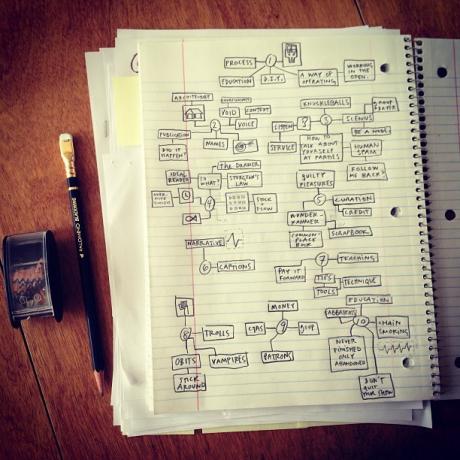 PROCESS
1
EDUCATION
D.I.Y.
A WAY OF
OPERATING
WORKING
IN THE
OPEN.
VOID
CONTENT
2
VOICE
NAMES
PUBLICATION
DID IT
HAPPEN?
KNUCKLEBALLS
LISTEN
?
3
SCENIUS
BE A NODE
SERVICE
HOW TO
TALK ABOUT
YOURSELF
AT PARTIES
HUMAN
SPAM
FOLLOW
ME BACK?
The DRAWER
IDEAL
READER
SO
WHAT?
STURGEON'S
LAW
4
STOCK
+ FLOW
GUILTY
PLEASURES
5
CURATION
CREDIT
WUNDER-
KAMMER
COMMON-
PLACE
BOOK
SCRAPBOOK
NARRATIVE
6
CAPTIONS
7
TEACHING
PAY IT
FORWARD
TIPS
TOOLS
TECHNIQUE
8
TROLLS
OBITS
VAMPIRES
STICK
AROUND
MONEY
CTAS
9
GIFT
PATRONS
EDUCATION
SABBATICALS
10
CHAIN
SMOKING
NEVER
FINISHED
ONLY
ABANDONED
DON'T
QUIT
YOUR SHOW
PALOMINO BLACKWING